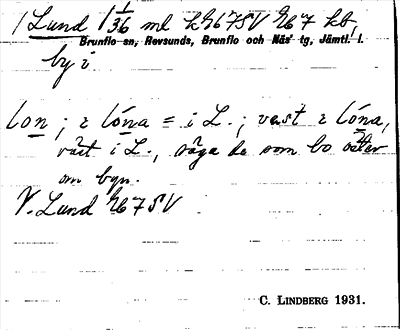 1 Lund 1/36 ml kZ67SV Z67 kb,
Brunflo sn, Revsunds, Brunflo och Näs' tg, Jämtl. l.
by i
lon ; z lóna = i L. ; vast z lóna,
väst i L., säga de som bo öster
om byn.
V. Lund Z67SV
C. LINDBERG 1931.